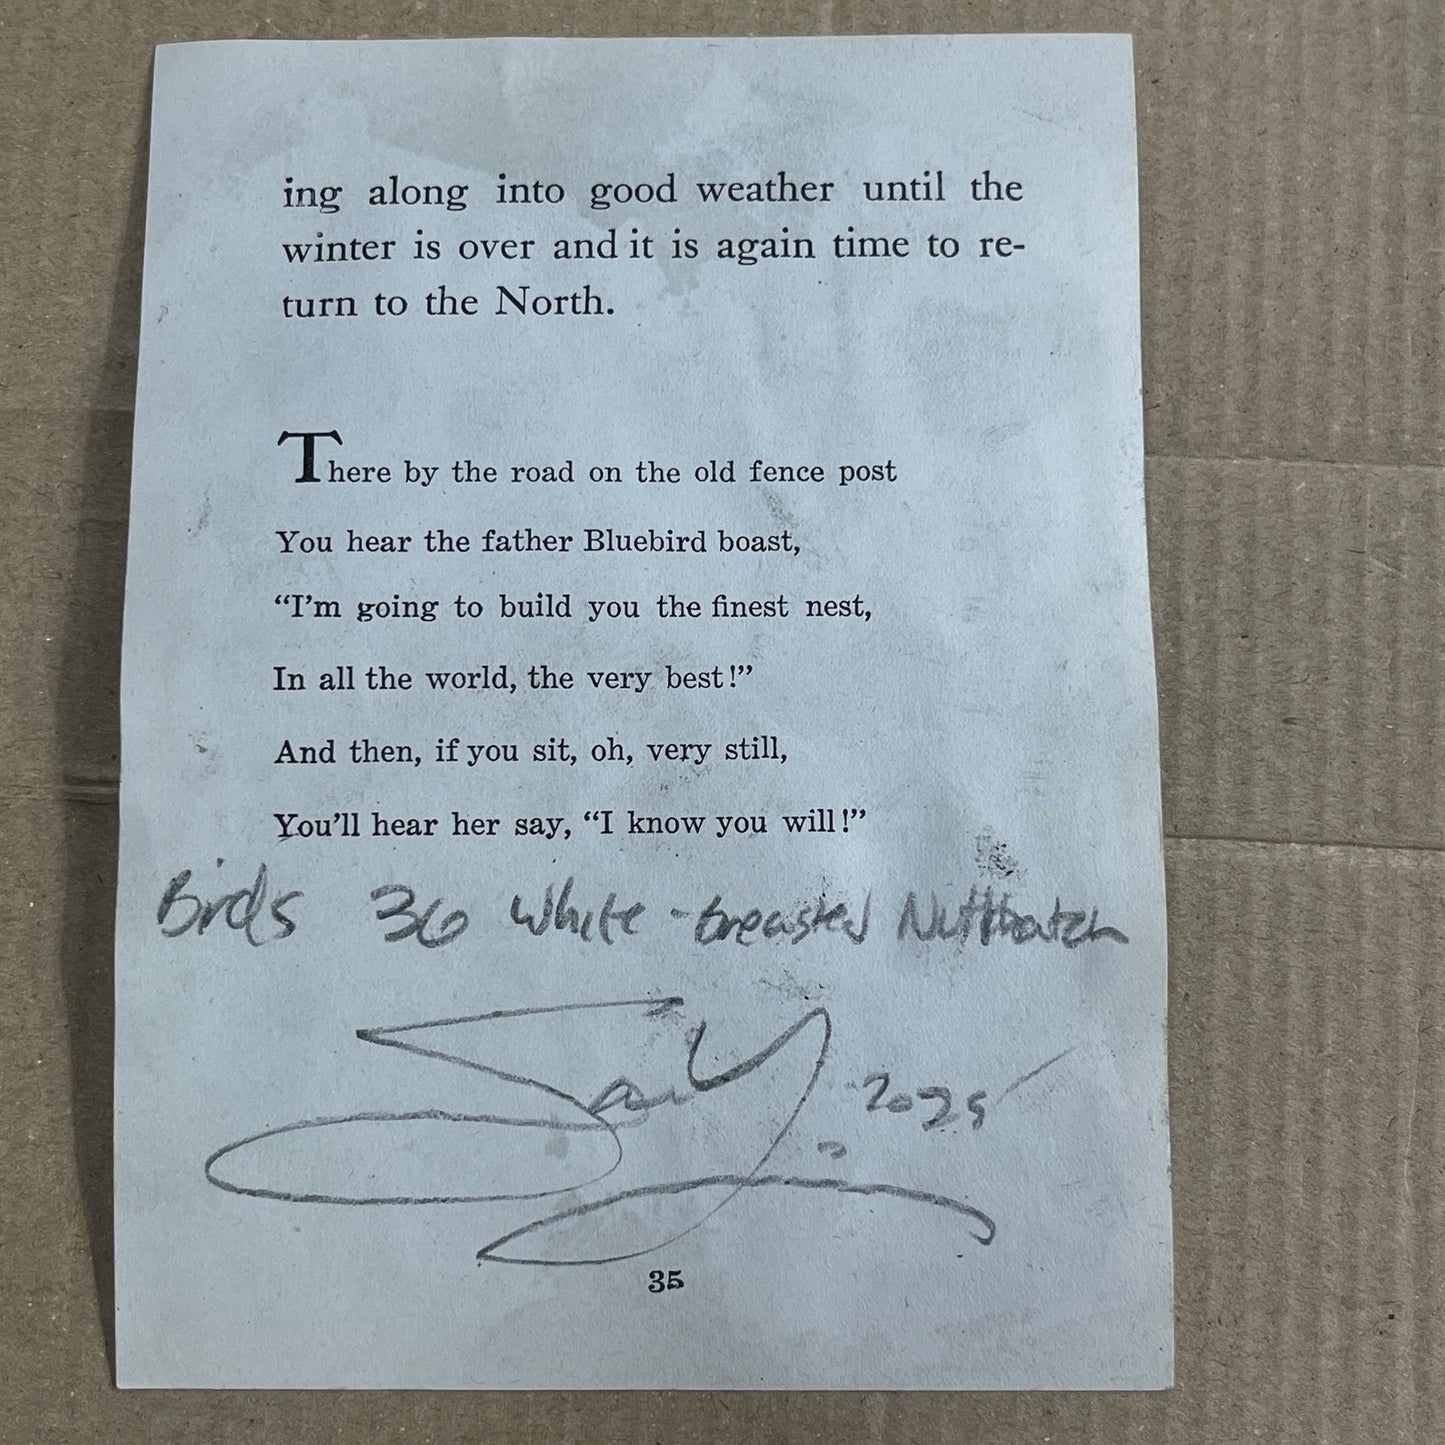 ing along into good weather until the
winter is over and it is again time to re-
turn to the North.
There by the road on the old fence post
You hear the father Bluebird boast,
“I’m going to build you the finest nest,
In all the world, the very best!”
And then, if you sit, oh, very still,
You’ll hear her say, “I know you will!”
Birds 36 White-breasted Nuthatch
2025
35